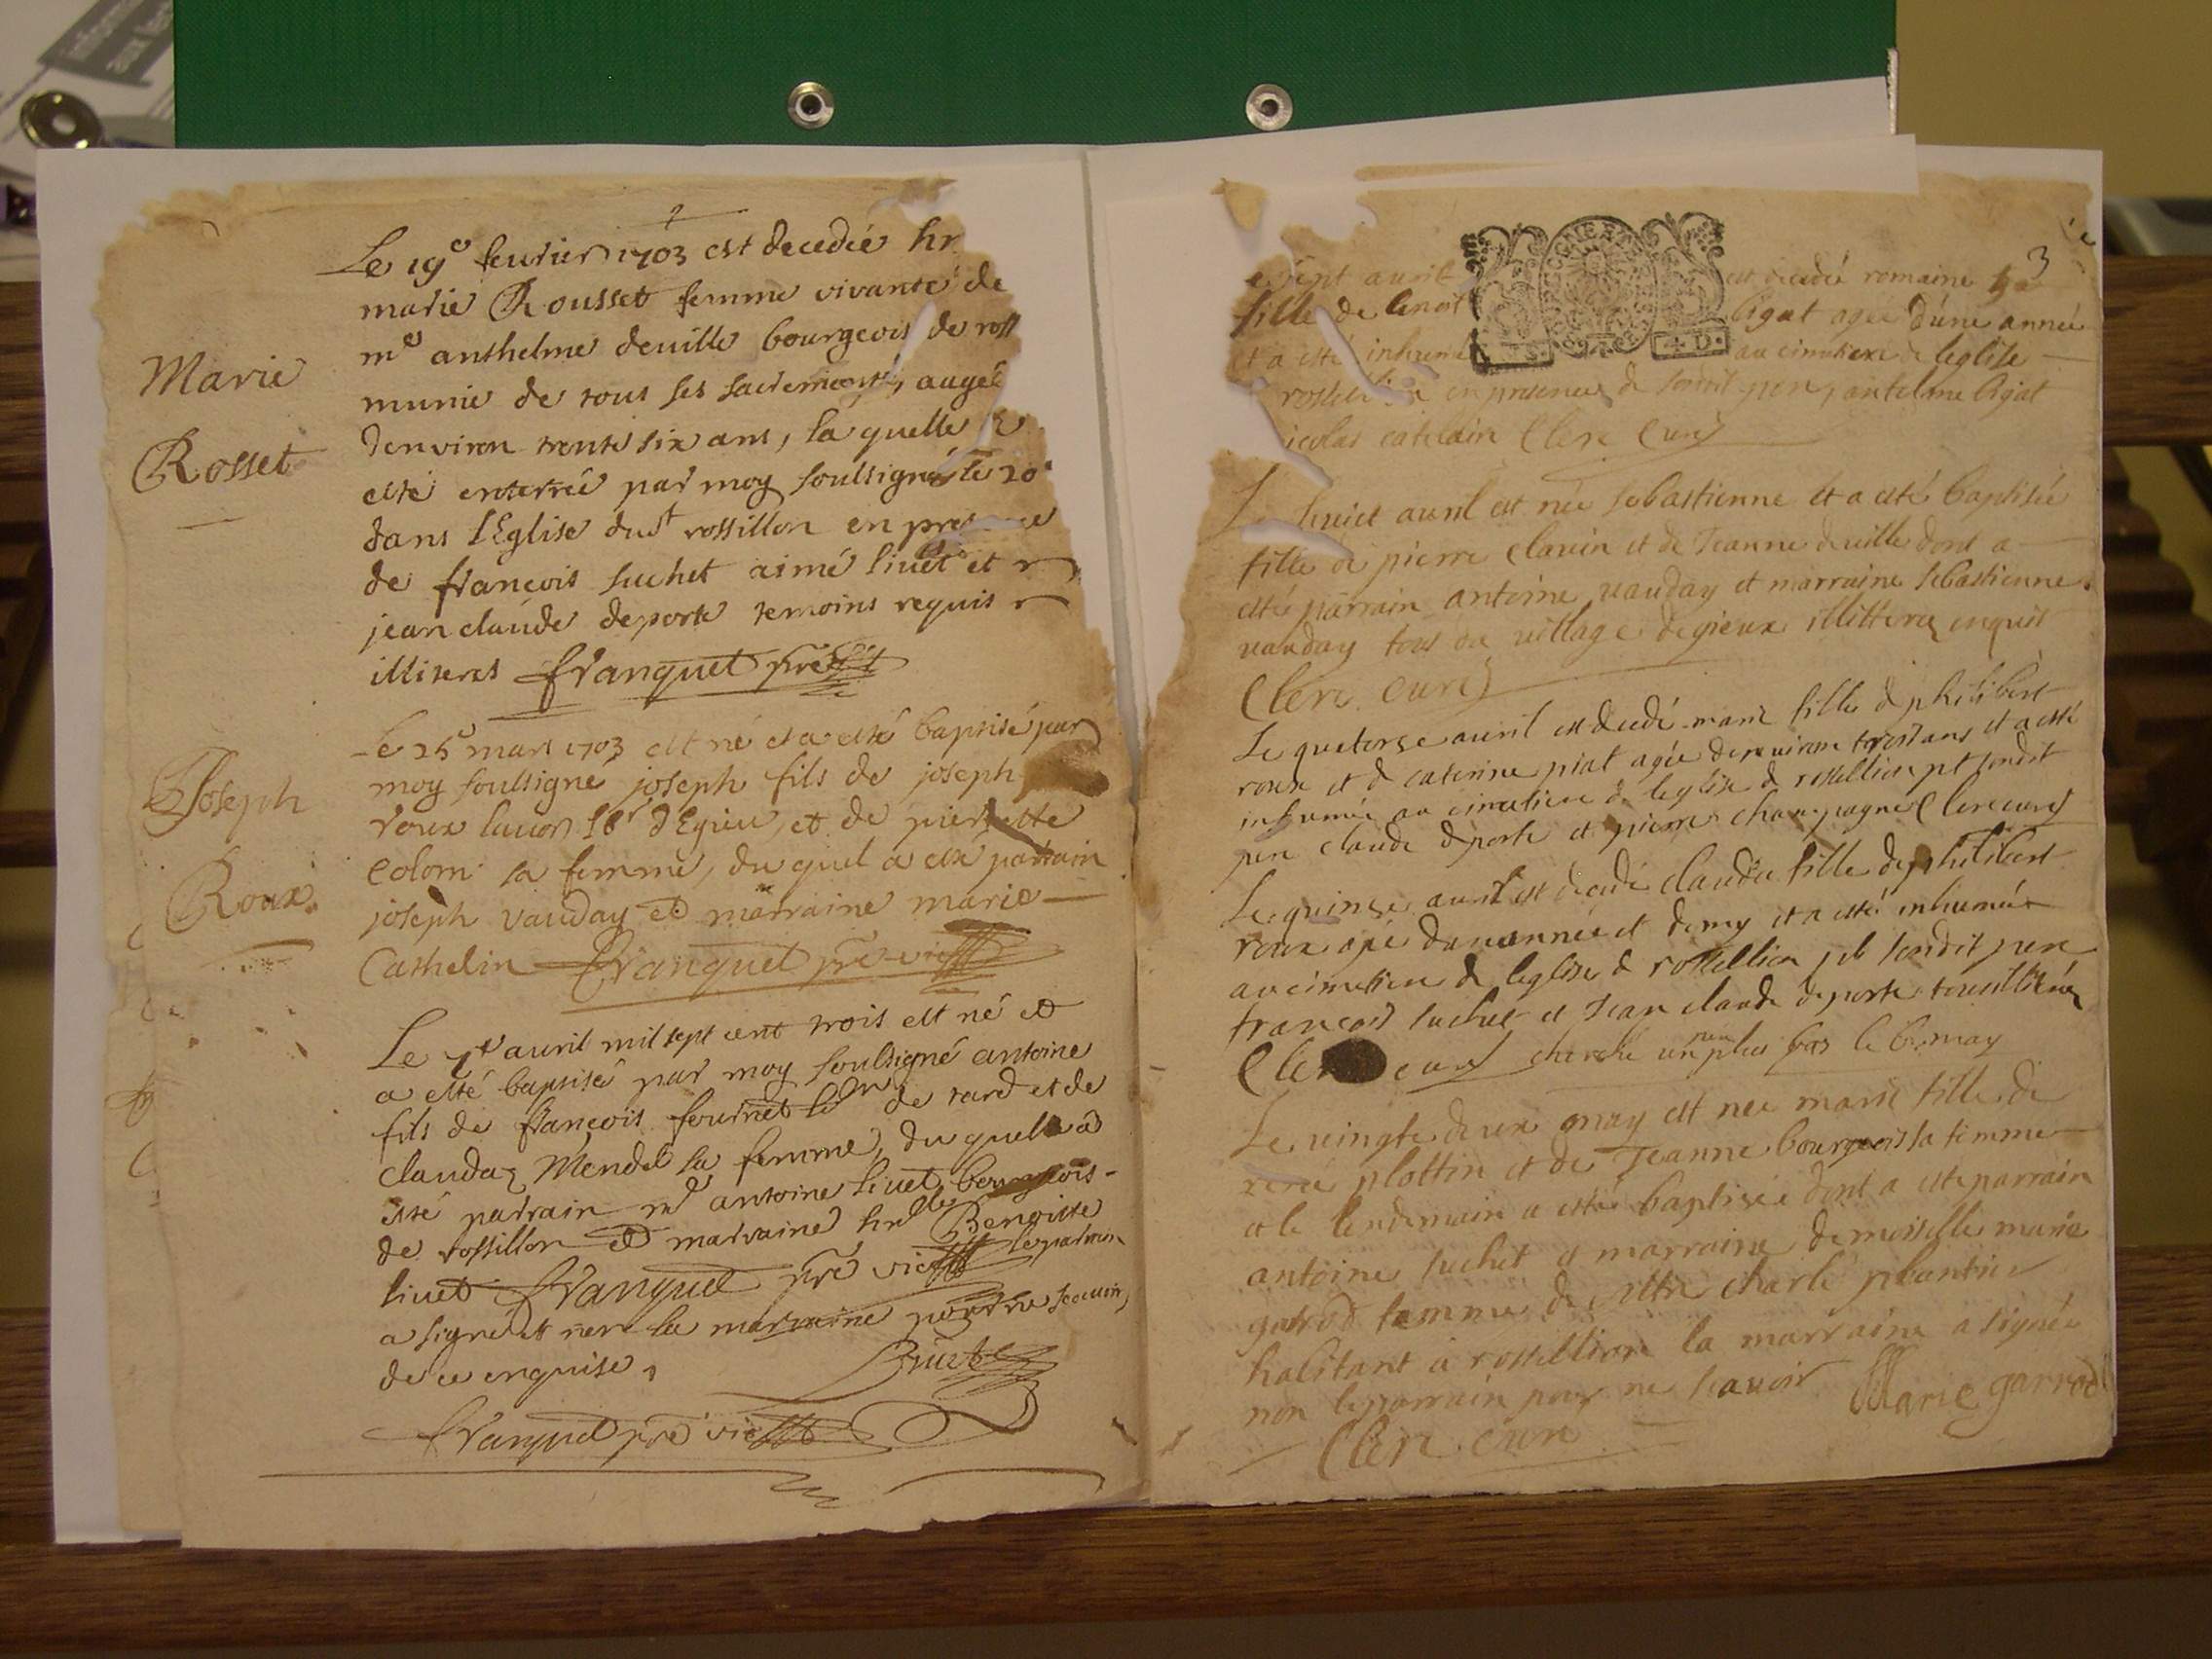 Le 19e feurier 1703 est decedée
marie Rousset femme vivante de
me anthelme deuille bourgeois de ross
munie de tous ses sacrements, augée
denviron trente six ans, la quelle
esté enterrée par moy soubsigné le 20e
dans lEglise dud rossillon en presence
de françois suchet aimé liuet et
jean claude deporte temoins requis
illiteres franquet pre
Marie
Rosset
Le 25e mars 1703 est né et a esté baptisé par
moy soubsigné joseph fils de joseph
roux dEgieu, et de pierrette
Colom sa femme, du quel a esté parrain
joseph vauday et marraine marie
Cathelin franquet pre vic
Joseph
Roux
Le auril mil sept cent trois est né et
a esté baptisé par moy soubsigné antoine
fils de françois fournet de rard et de
clauda Mendel sa femme, du quel a
esté parrain me antoine liuet bourgeois
de rossillon et marraine Benoiste
liuet franquet pre vic le parrain
a signé et non la marraine pour ne scauoir
de ce enquise,
franquet pre vic
3
sept auril est decedé romaine
fille de benoit bigat agée d'une année
et a esté inhumé au cimetiere de leglise
en presence de pere, antelme bigat
Clerc Curé
4 D.
huict auril est née sebastienne et a esté baptisée
fille de pierre clauin et de Jeanne deuille dont a
esté parrain antoine vauday et marraine sebastienne
vauday tous du village degieux enquis
Clerc curé
Le quatorse auril est decedé marie fille de philibert
roux et de caterine piat agée denuiron trois ans et a esté
inhumée au cimetiere de leglise de rossellion
pere claude deporte et pierre champagne Clerc curé
Le quinse auril est decedé claudie fille de philibert
roux agée dune année et demy et a esté inhumée
au cimetiere de leglise de rossellion pere
françois suchet et Jean claude deporte
Clerc curé cherché un plus bas le may
Le vingte deux may est nee marie fille de
plottin et de Jeanne bourgeois sa femme
et le lendemain a esté baptisée dont a este parrain
antoine suchet et marraine demoiselle marie
garrod femme de charle plantier
habitant a rossellion la marraine a signée
non le parrain pour ne scauoir Marie garrod
Clerc curé